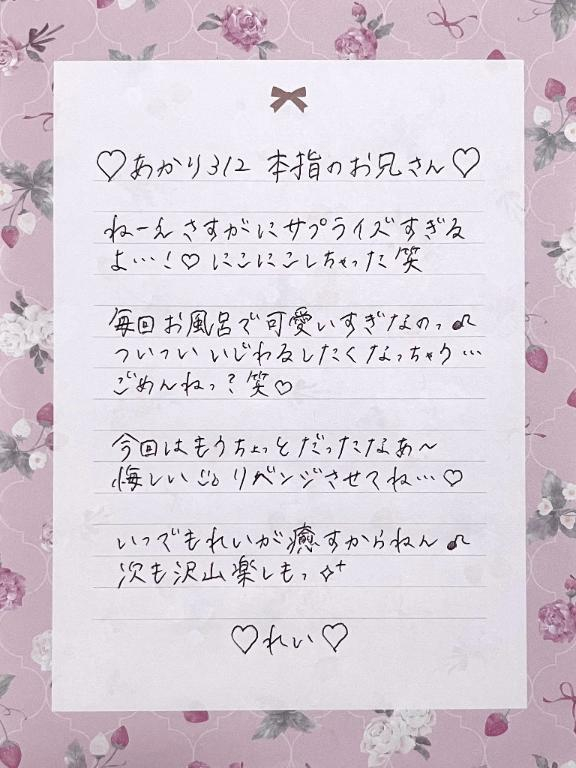 ♡あかり312 本指のお兄さん♡
ねーえ さすがにサプライズすぎる
よ…！♡ にこにこしちゃった 笑
毎回お風呂で可愛いすぎなのっ♪
ついつい いじわるしたくなっちゃう…
ごめんねっ？笑♡
今回はもうちょっとだったなあ〜
悔しい
リベンジさせてね…♡
いつでもれいが癒すからねん♪
次も沢山楽しもっ✧⁺
♡れい♡